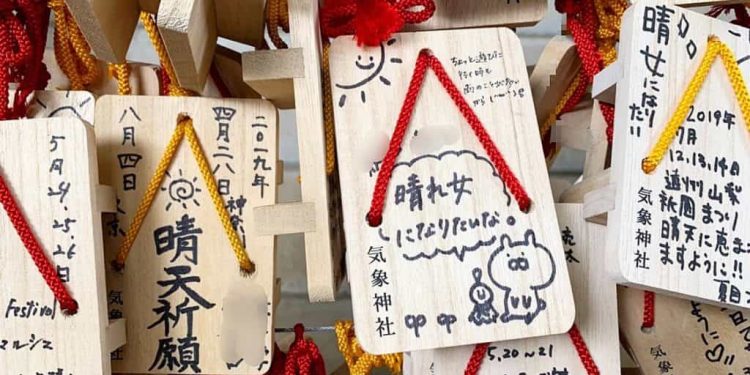 5月24,25,26日
Festival
マルシェ
気象神社
二〇一九年
四月二八日
八月四日
晴天祈願
気象神社
ちょっと遊びに
行く時も
晴れ女
になりたいな。
気象神社
晴女になり
たい
2019年
7月
12,13,14日
遠州山梨
祇園まつり
晴天に恵まれ
ますように!!
気象神社
5,20~21
気象
ように♡